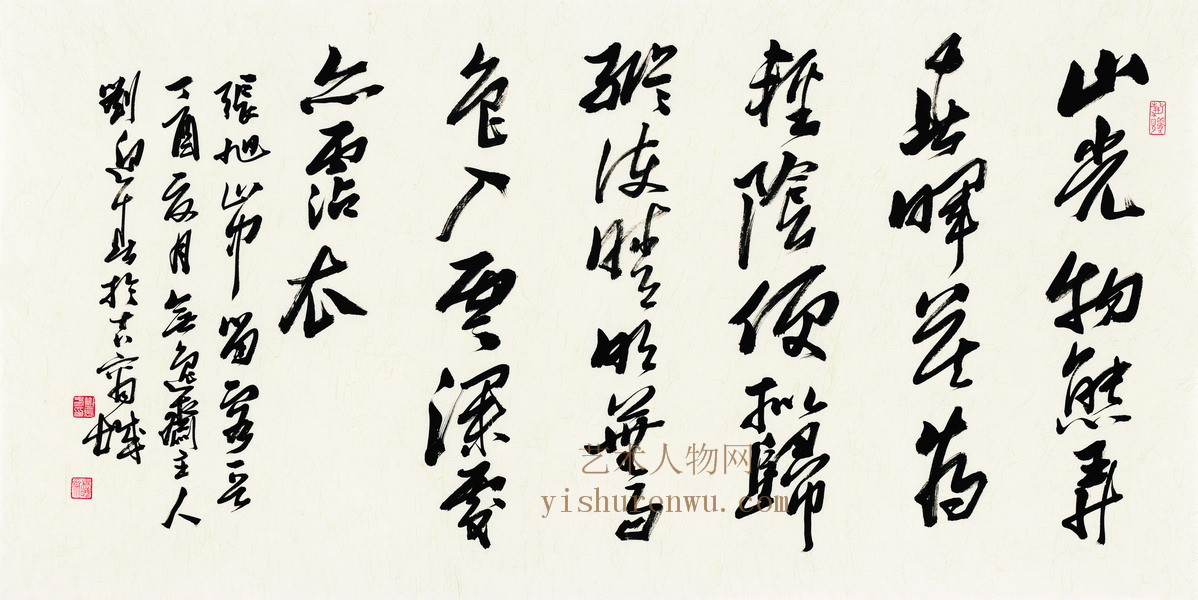 山光物態弄
春暉莫為
輕陰便擬歸
縱使晴明無雨
色入雲深處
亦霑衣
張旭山中留客一首
丁酉夏月無逸齋主人
劉迎書於古城
艺术人物网
yishurenwu.com